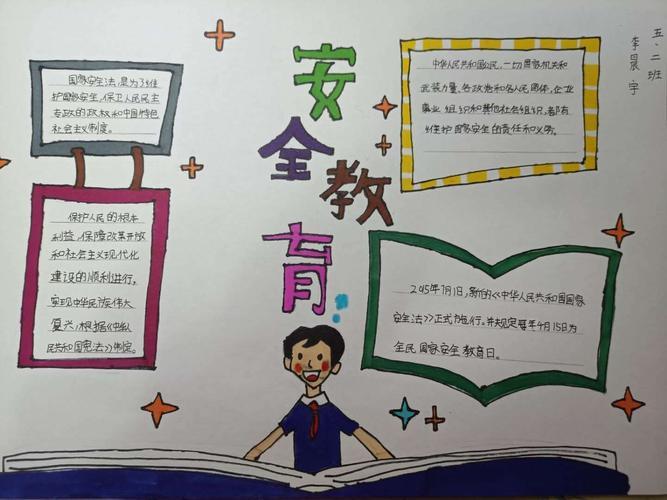 安
全
教
育
五、二班
李晨宇
国家安全法,是为了维
护国家安全,保卫人民民主
专政的政权和中国特色
社会主义制度。
保护人民的根本
利益,保障改革开放
和社会主义现代化
建设的顺利进行,
实现中华民族伟大
复兴,根据《中华人
民共和国宪法》制定。
中华人民共和国公民,一切国家机关和
武装力量,各政党和各人民团体,企业
事业组织和其他社会组织,都有
维护国家安全的责任和义务。
2015年7月1日,新的《中华人民共和国国家
安全法》正式施行。并规定每年4月15日为
全民国家安全教育日。